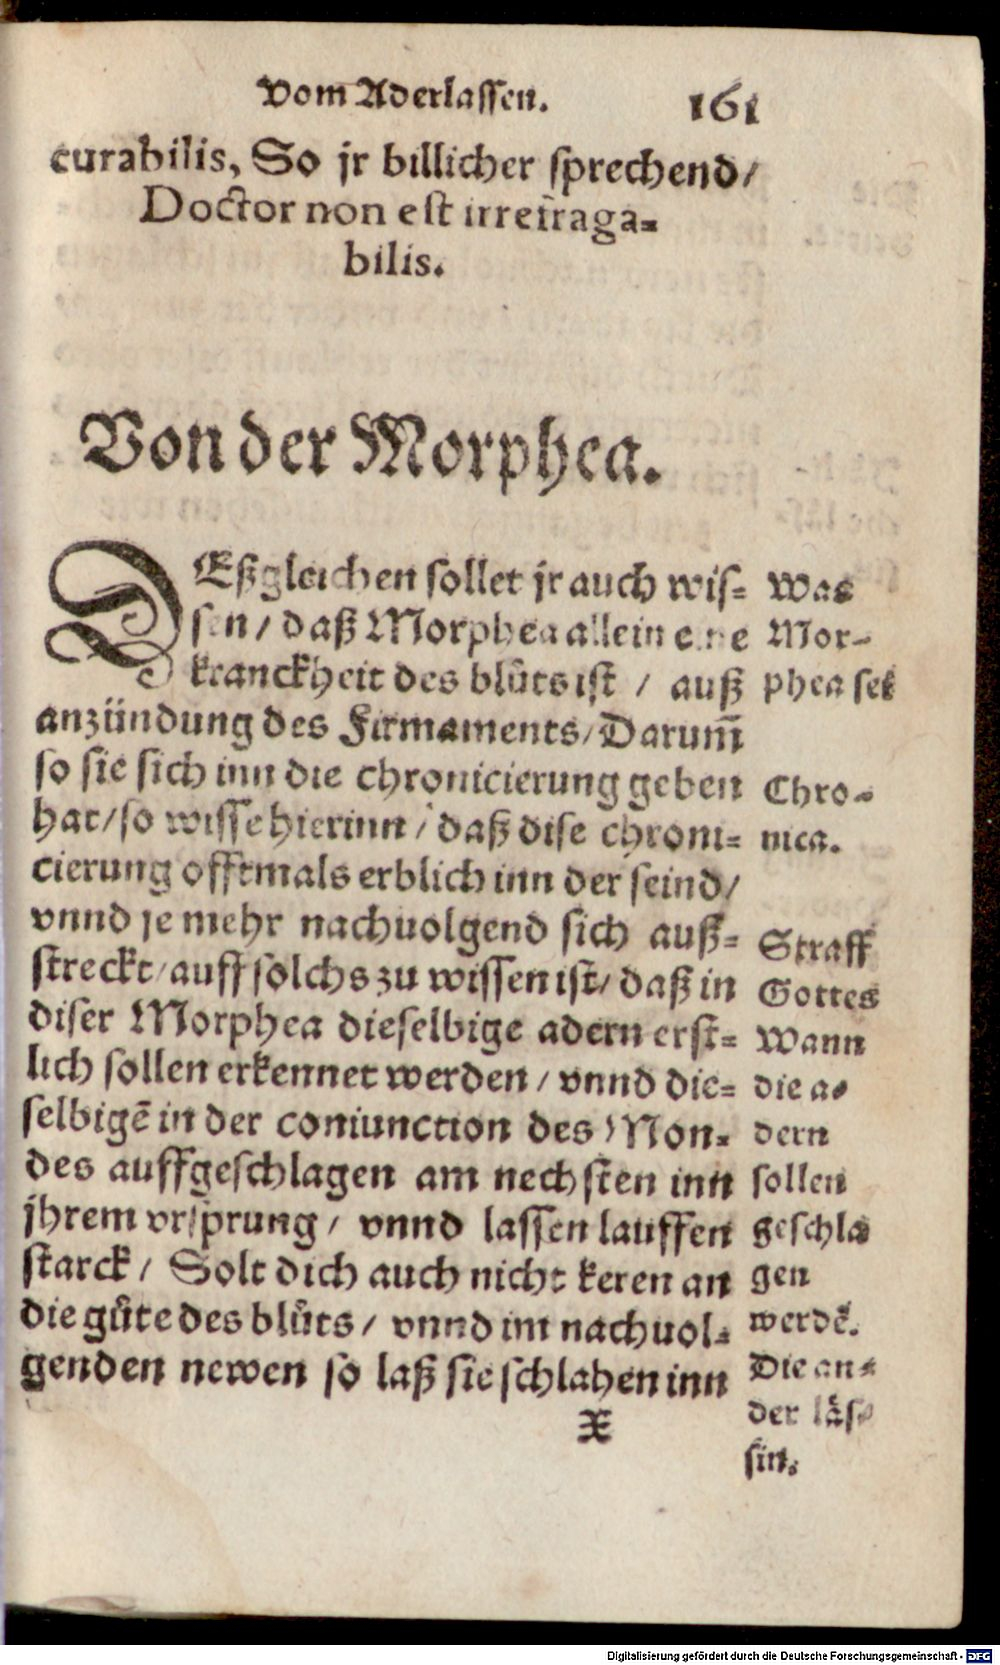 Vom Aderlassen. 161
curabilis, So jr billicher sprechend/
Doctor non est irrefraga-
bilis.
Von der Morphea.
DEßgleichen sollet jr auch wis-
sen / daß Morphea allein eine
kranckheit des blůts ist / auß
anzündung des Firmaments/ Darum̃
so sie sich inn die chronicierung geben
hat/ so wisse hierinn / daß dise chroni-
cierung offtmals erblich inn der seind/
vnnd je mehr nachuolgend sich auß-
streckt/ auff solchs zu wissen ist/ daß in
diser Morphea dieselbige adern erst-
lich sollen erkennet werden / vnnd die-
selbigē in der coniunction des Mon-
des auffgeschlagen am nechsten inn
jhrem vrsprung / vnnd lassen lauffen
starck / Solt dich auch nicht keren an
die gůte des blůts / vnnd im nachuol-
genden newen so laß sie schlahen inn
X
Was
Mor-
phea sei
Chro-
nica.
Straff
Gottes
Wann
die a-
dern
sollen
geschla
gen
werdē.
Die an-
der läs-
sin.
Digitalisierung gefördert durch die Deutsche Forschungsgemeinschaft - DFG